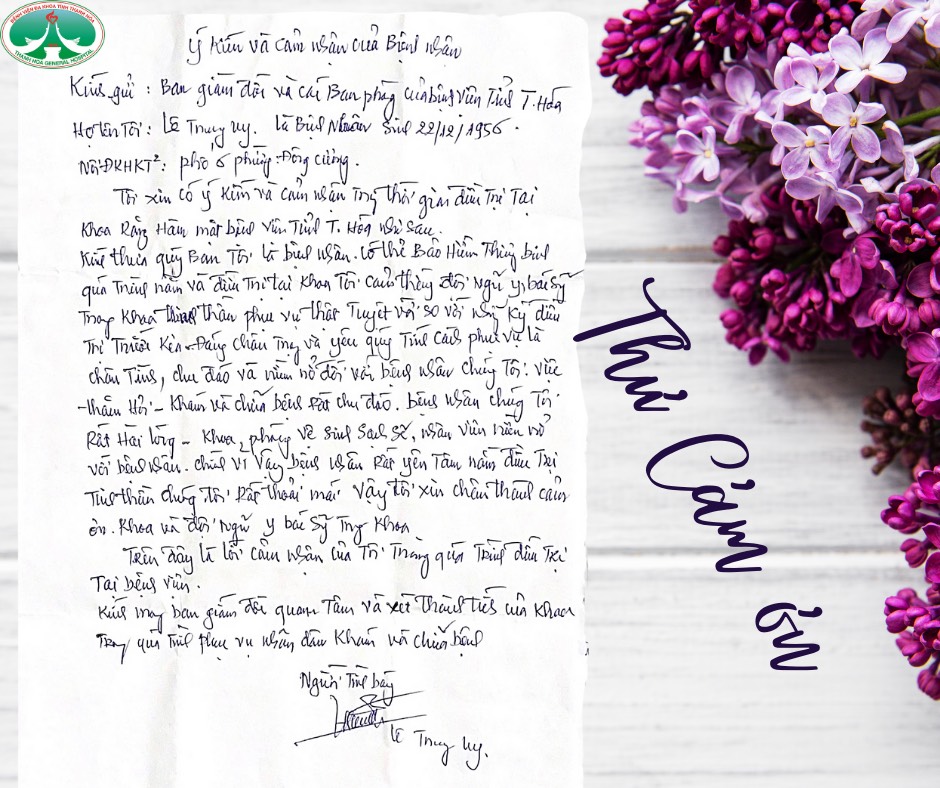 BỆNH VIỆN ĐA KHOA TỈNH THANH HÓA
THANH HOA GENERAL HOSPITAL
Ý Kiến và cảm nhận của Bệnh nhân
Kính gửi : Ban giám đốc và các Ban phòng của bệnh viện Tỉnh T. Hóa
Họ tên Tôi : Lê Trung Uy. là Bệnh Nhân Sinh 22/12/1956.
Nơi ĐKHKT²: phố 6 phường Đông cương.
Tôi xin có ý kiến và cảm nhận Trong thời gian điều Trị Tại
Khoa Răng Hàm mặt bệnh viện Tỉnh T. Hóa như sau.
Kính thưa quý Ban Tôi là bệnh nhân. có thẻ Bảo Hiểm Thương binh
quá Trình nằm và điều Trị tại Khoa Tôi cảm thấy đội ngũ y, bác sỹ
Trong Khoa tinh thần phục vụ thật Tuyệt vời so với những kỳ điều
Trị Trước kia. Đáng chân Trọng và yêu quý Tính cách phục vụ là
chân Tình, chu đáo và niềm nở đối với bệnh nhân chúng Tôi. việc
thăm Hỏi - Khám và chữa bệnh rất chu đáo. Bệnh nhân chúng Tôi
Rất Hài lòng - Khoa, phòng vệ sinh sạch sẽ, nhân viên niềm nở
với bệnh nhân. chính vì vậy bệnh nhân Rất yên Tâm nằm điều Trị
Tinh thần chúng tôi Rất thoải mái vậy tôi xin chân thành cảm
ơn. Khoa và đội ngũ y bác sỹ Trong Khoa
Trên đây là lời cảm nhận của Tôi Trong quá Trình điều Trị
Tại bệnh viện.
Kính mong ban giám đốc quan Tâm và xét thành tích của Khoa
Trong quá Trình phục vụ nhân dân Khám và chữa bệnh
Người Trình bày
Lê Trung Uy.
Thư Cảm ơn